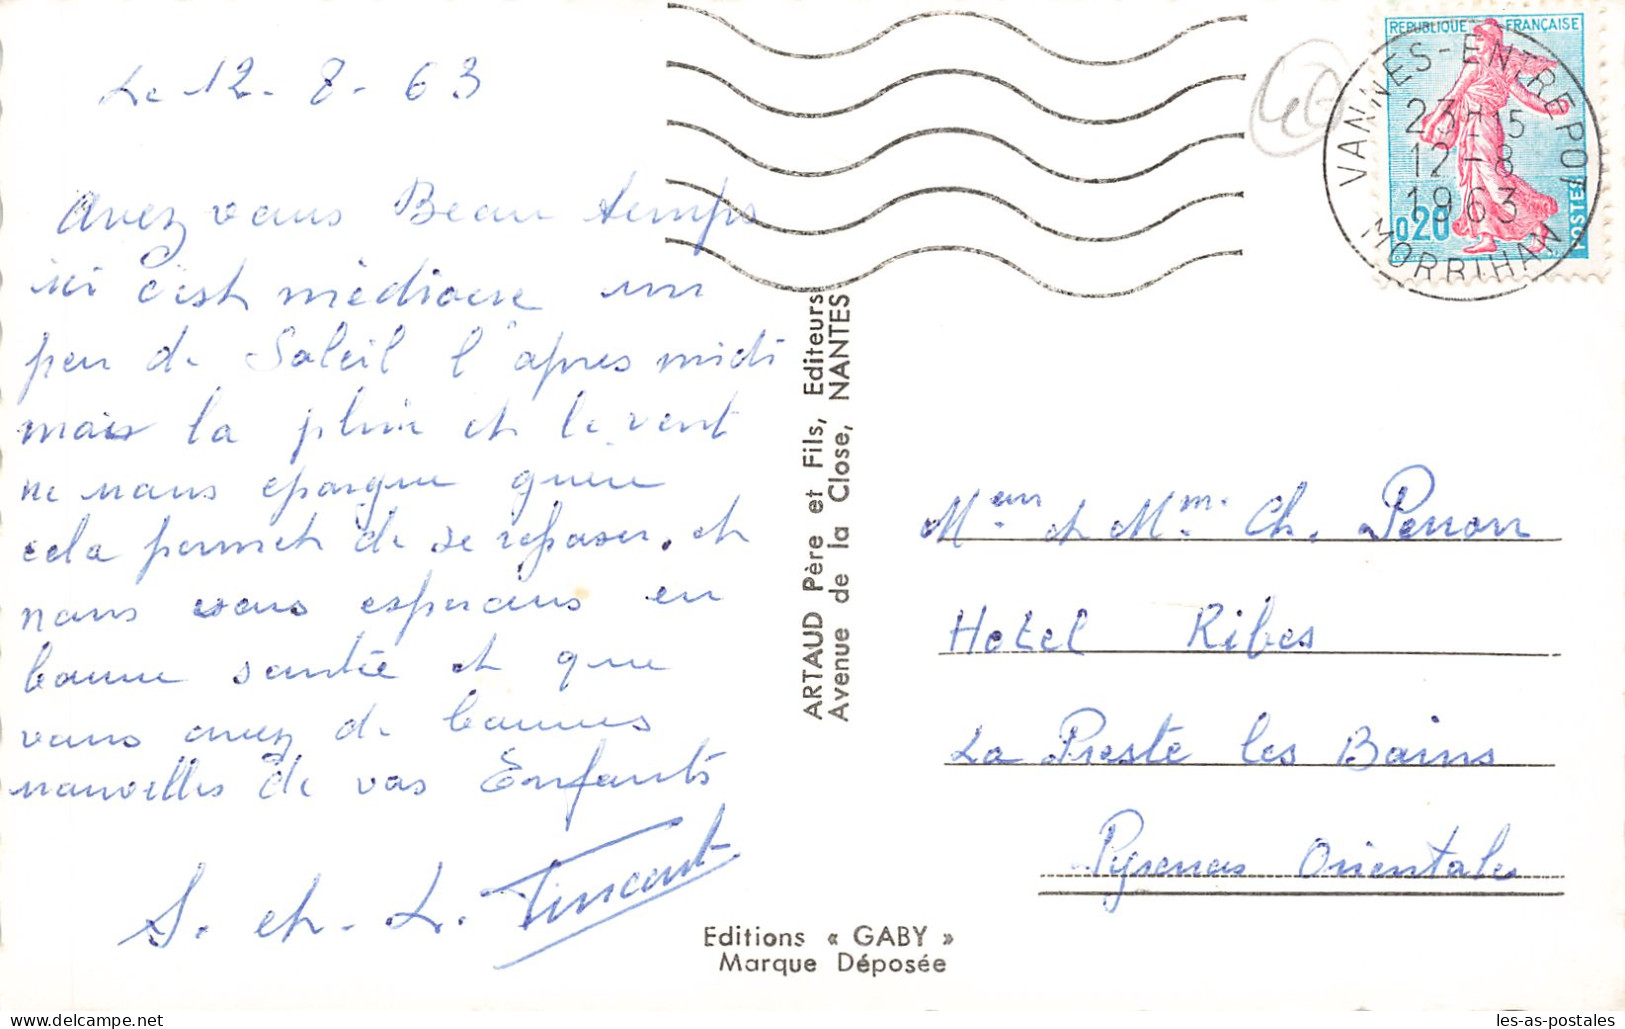 Le 12 - 8 - 63
Avez vous Beau temps
ici c'est médiocre un
peu de Soleil l'après midi
mais la pluie et le vent
ne nous epargne guère
cela permet de se reposer. et
nous vous esperons en
bonne santée et que
vous avez de bonnes
nouvelles de vos Enfants
S. et L.
ARTAUD Père et Fils, Editeurs
Avenue de la Close, NANTES
Editions « GABY »
Marque Déposée
REPUBLIQUE FRANÇAISE
0,20
POSTES
VANNES-ENTREPOT
23H15
12-8
1963
MORBIHAN
Meur et Mme. Ch. Perron
Hotel Ribes
La Preste les Bains
Pyrenees Orientales
les-as-postales
www.delcampe.net